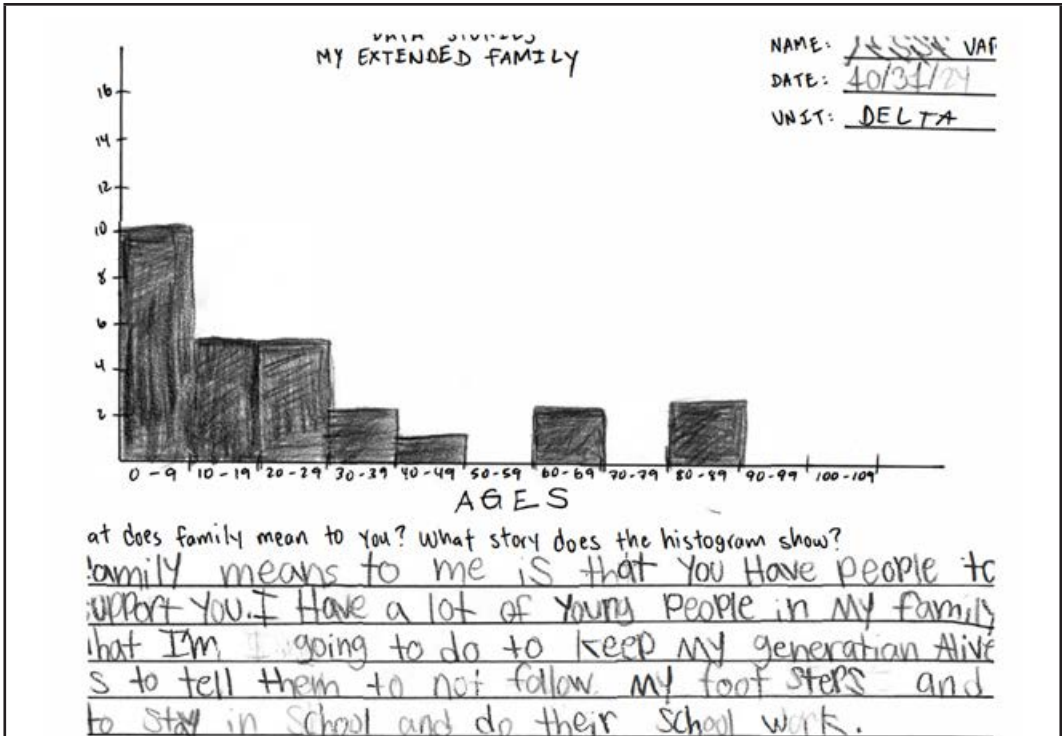 DATA STORIES
MY EXTENDED FAMILY
NAME: VAR
DATE: 10/31/24
UNIT: DELTA
16
14
12
10
8
6
4
2
0-9 10-19 20-29 30-39 40-49 50-59 60-69 70-79 80-89 90-99 100-109
AGES
at does family mean to you? What story does the histogram show?
amily means to me is that You Have people to
upport You. I Have a lot of Young People in My family
hat I'm going to do to keep My generation Alive
s to tell them to not follow my foot steps and
to stay in School and do their School work.